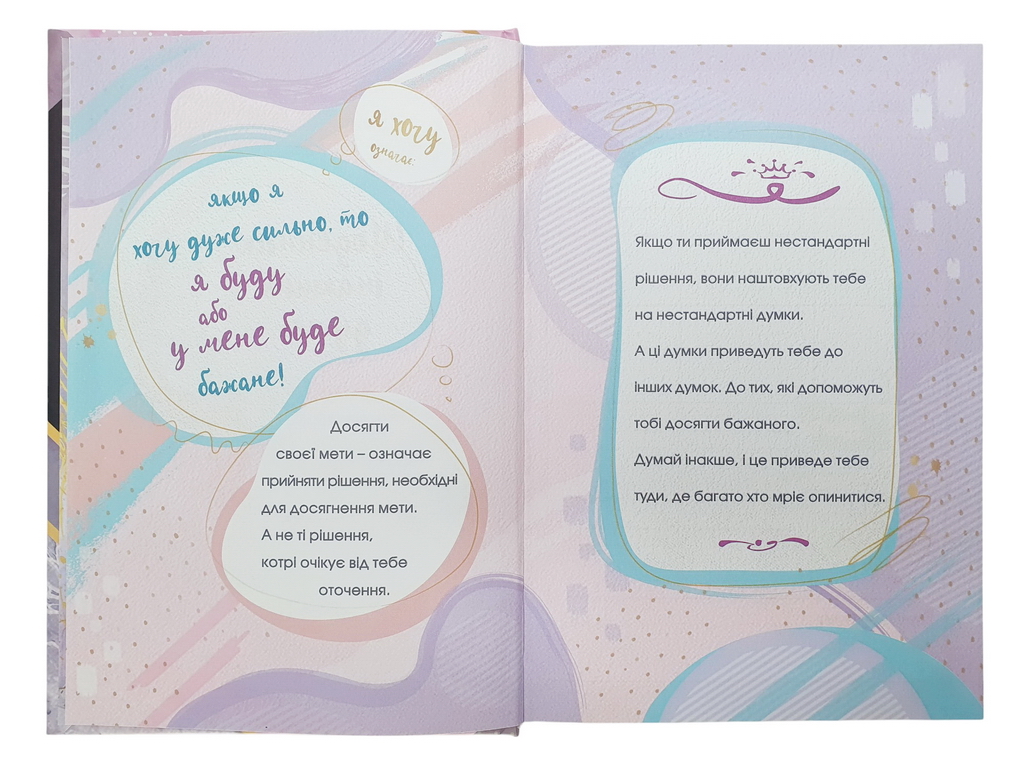 я хочу
означає:
якщо я
хочу дуже сильно, то
я буду
або
у мене буде
бажане!
Досягти
своєї мети – означає
прийняти рішення, необхідні
для досягнення мети.
А не ті рішення,
котрі очікує від тебе
оточення.
Якщо ти приймаєш нестандартні
рішення, вони наштовхують тебе
на нестандартні думки.
А ці думки приведуть тебе до
інших думок. До тих, які допоможуть
тобі досягти бажаного.
Думай інакше, і це приведе тебе
туди, де багато хто мріє опинитися.